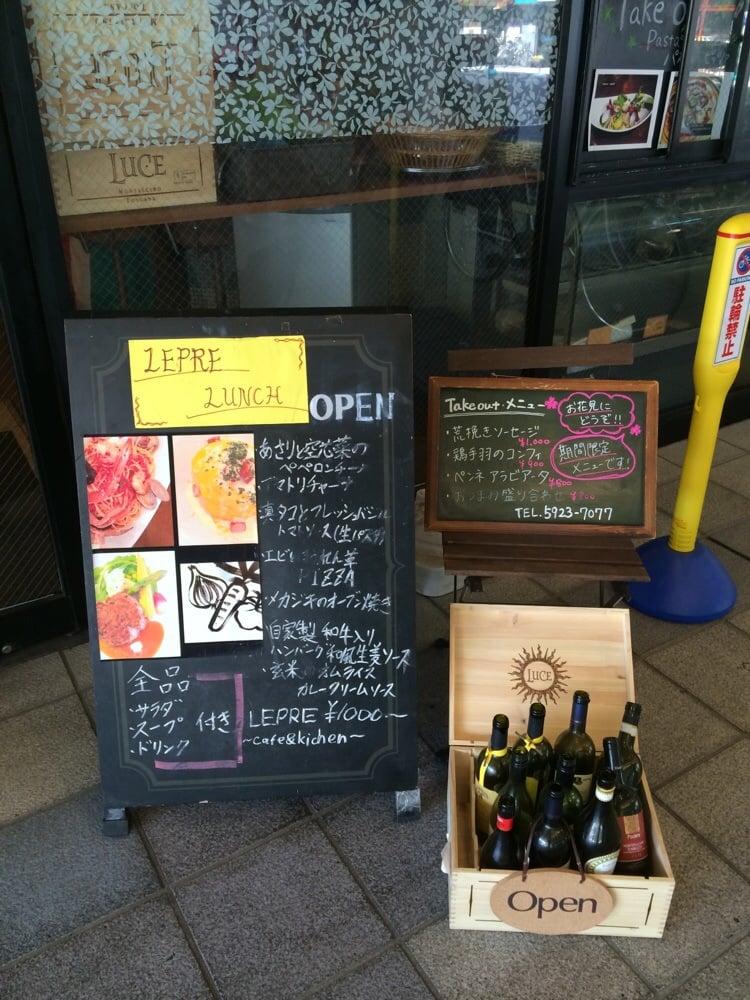 LUCE
MONTALCINO
TOSCANA
Take O
Pasta
LEPRE
LUNCH
OPEN
あさりと空芯菜の
ペペロンチーノ
アマトリチャーナ
真タコとフレッシュバジル
トマトソース(生パスタ)
・エビとほうれん草
PIZZA
・メカジキのオーブン焼き
・自家製 和牛入り
ハンバーグ 和風生姜ソース
・玄米 オムライス
カレークリームソース
全品
・サラダ
・スープ 付き
・ドリンク
LEPRE ¥1000.〜
〜cafe&kichen〜
Takeout・メニュー
お花見に
どうぞ!!
・荒挽きソーセージ
¥1,000
・鶏手羽のコンフィ
¥900
期間限定
メニューです!
・ペンネ アラビアータ
¥800
・おつまみ盛り合わせ
TEL.5923-7077
駐輪禁止
LUCE
Open